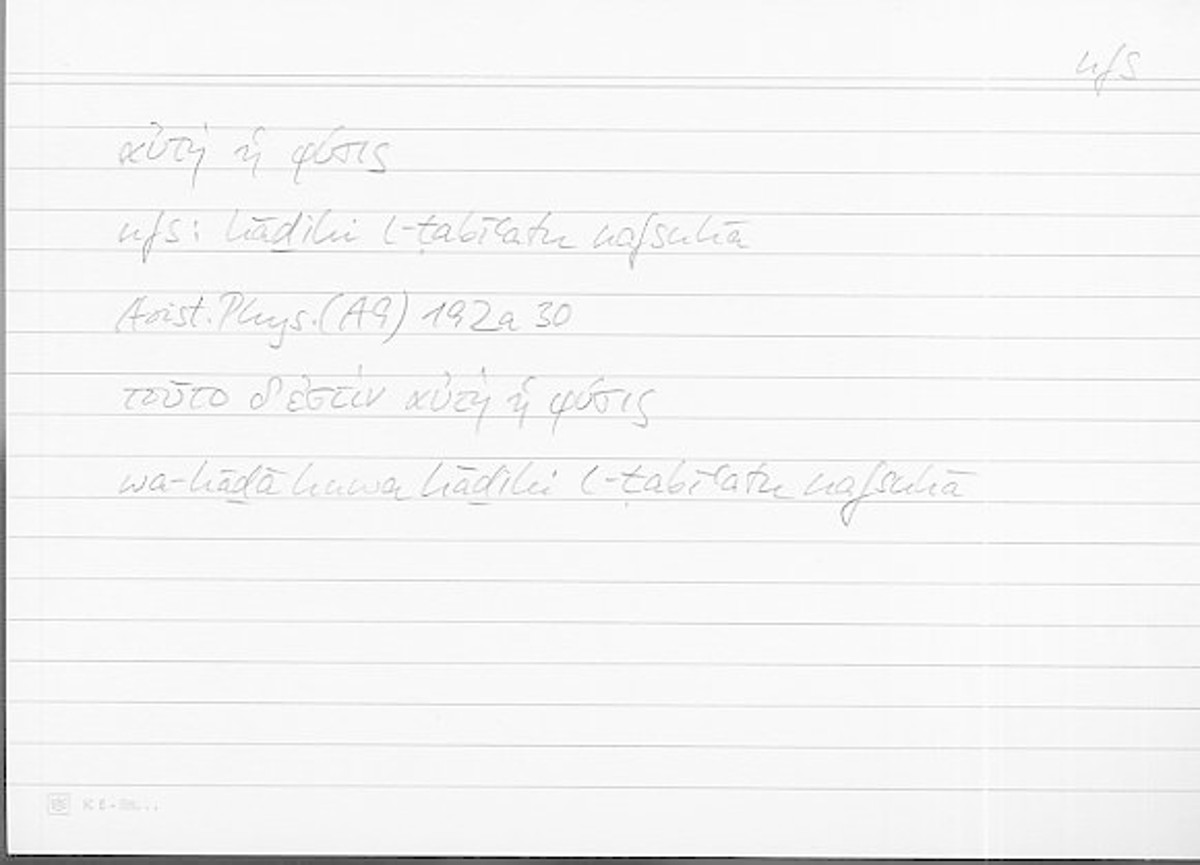 nfs
αὐτὴ ἡ φύσις
nfs: hāḏihi l-ṭabīʿatu nafsuhā
Arist. Phys. (A9) 192a 30
τοῦτο δ' ἐστὶν αὐτὴ ἡ φύσις
wa-hāḏā huwa hāḏihi l-ṭabīʿatu nafsuhā